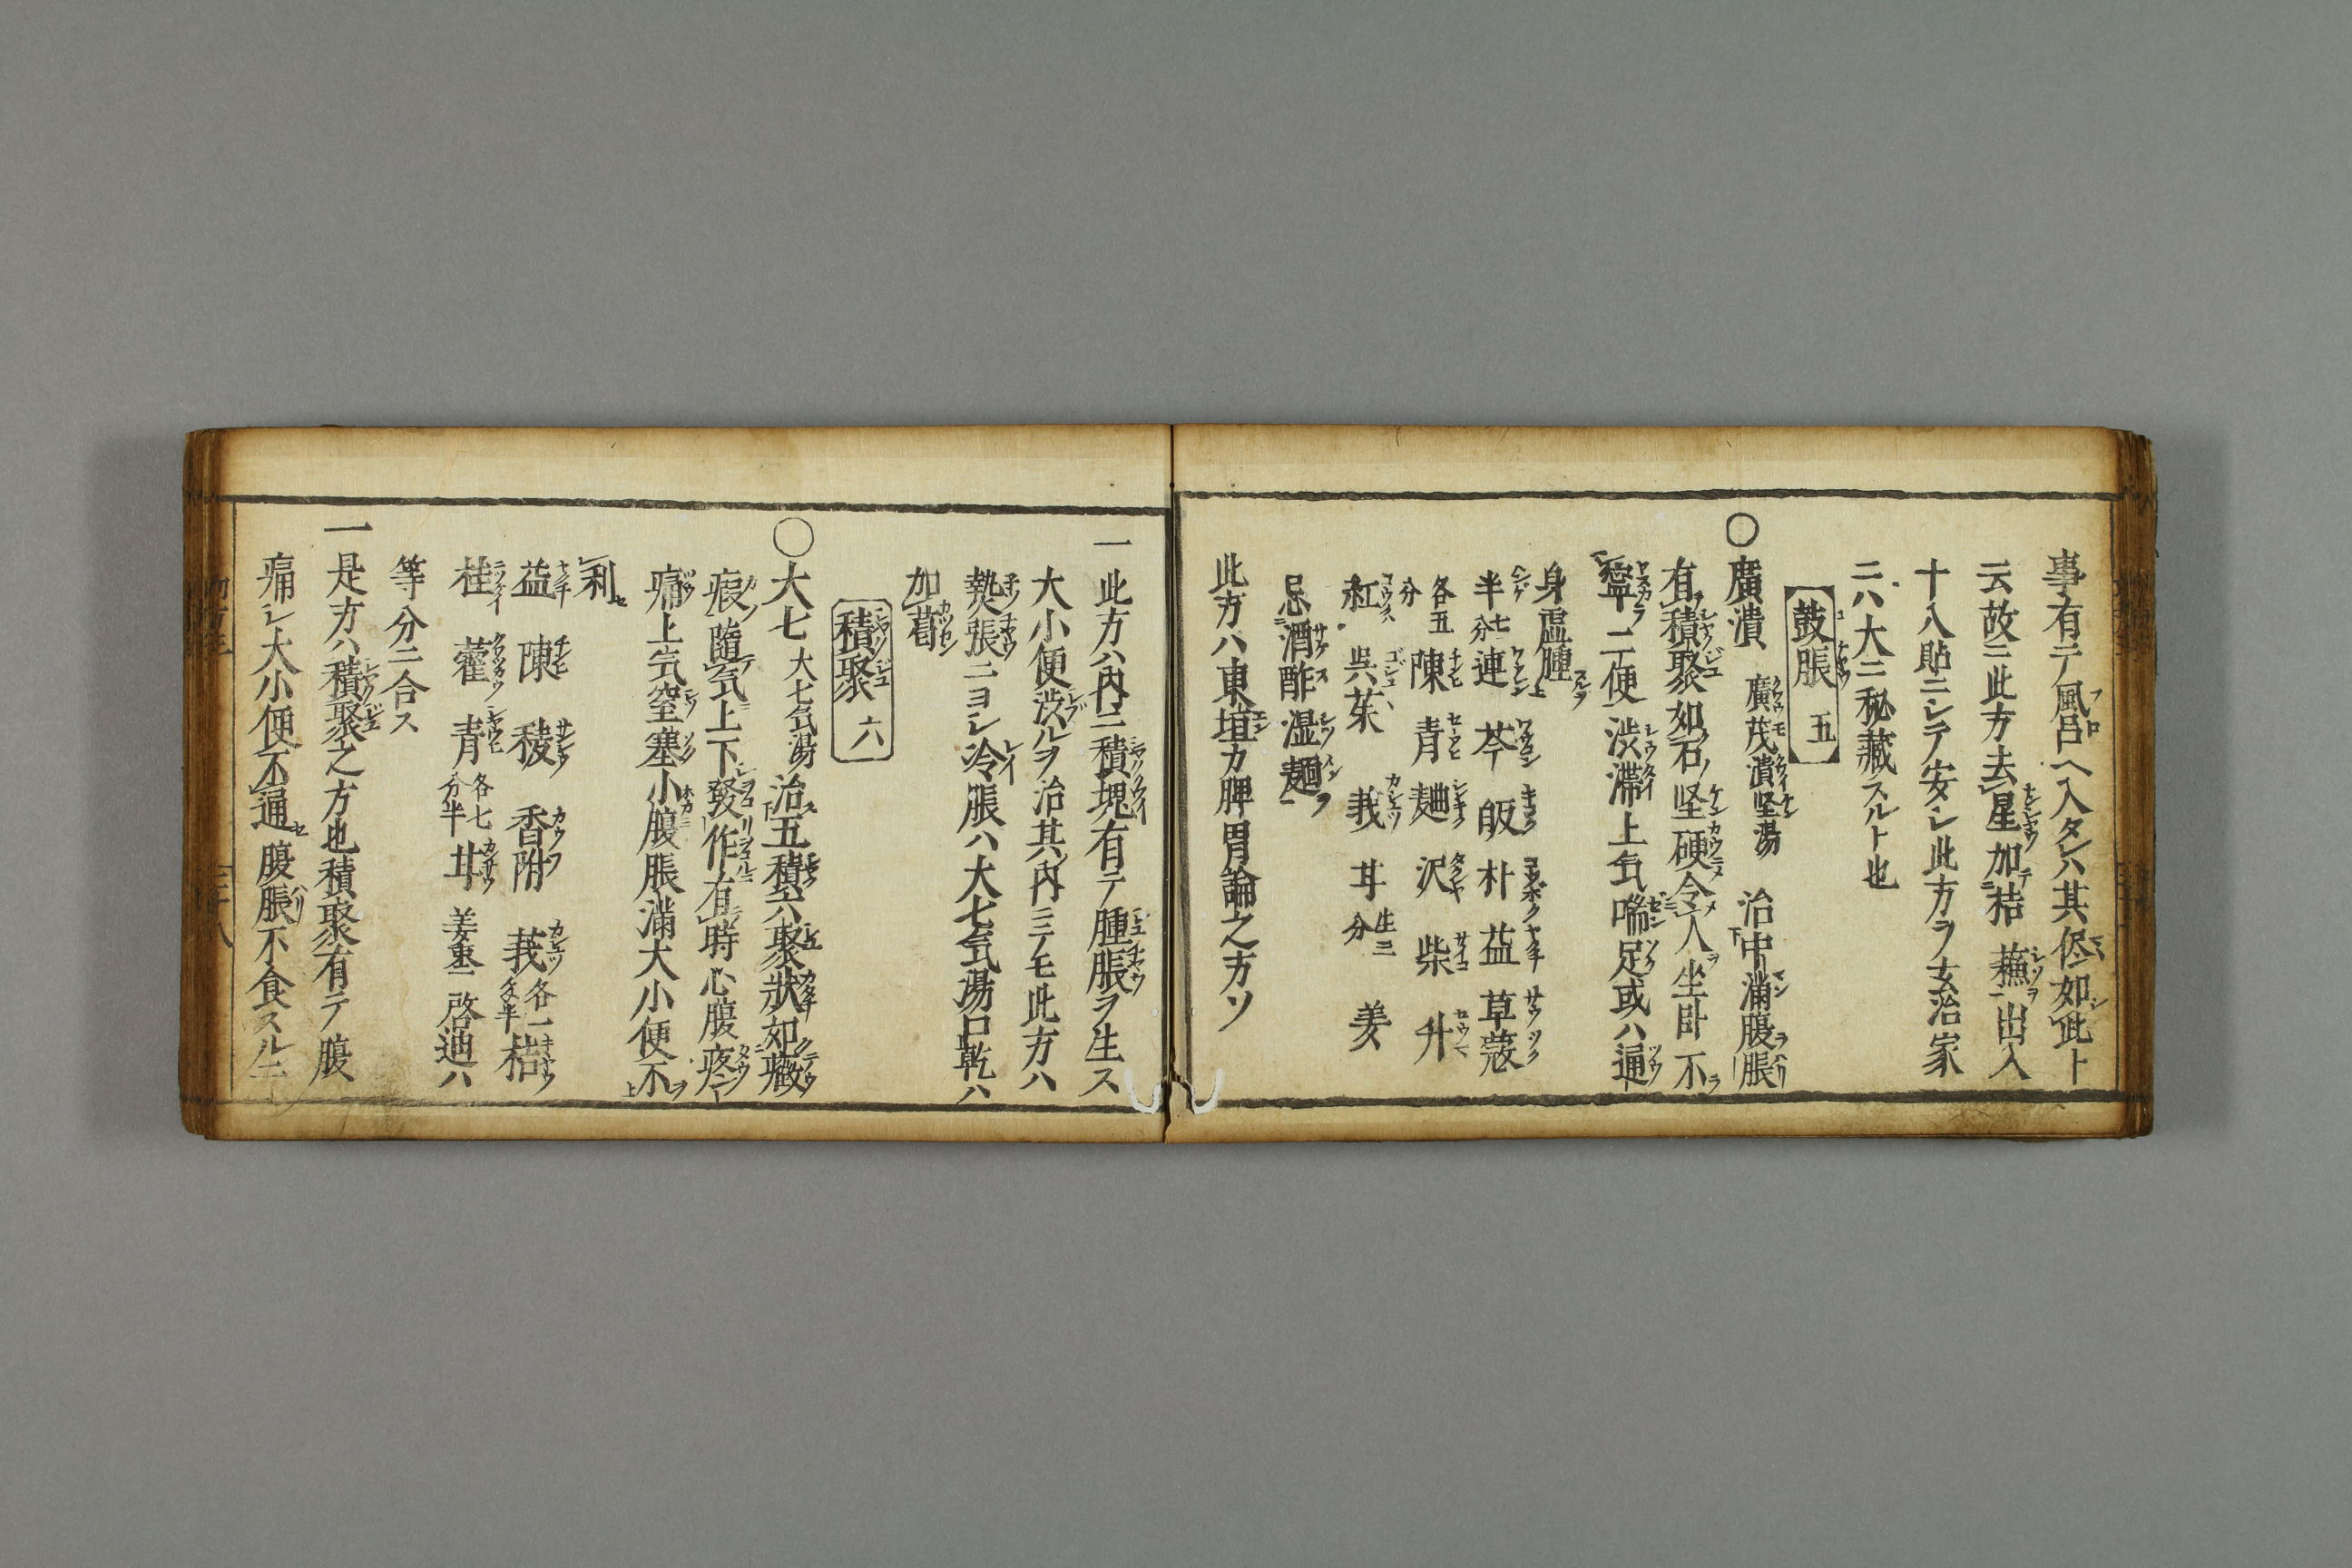 事有テ風呂ヘ入タレハ其侭如此ト
云故ニ此方去星加桔蘓出入
十八貼ニシテ安タシ此方ヲ玄治家
ニハ大ニ秘藏スルト也
鼓脹 五
〇廣潰 廣茂潰坚湯 治中滿腹脹
有積聚如石坚硬令人坐卧不
寧二便渋滞上気喘足或ハ通
身虚腫
半七分 連 芩 皈 朴 益 草蔲
各五分 陳 青 麯 沢 柴 升
紅 呉茱 莪 甘生二分 姜
忌酒酢湿麺
此方ハ東垣カ脾胃論之方ソ
一此方ハ内ニ積塊有テ腫脹ヲ生ス
大小便渋ルヲ治其内ミニモ此方ハ
熱張ニヨシ冷脹ハ大七気湯口乾ハ
加葛
積聚 六
〇大七 大七気湯 治五積六聚狀如癥
瘕隨気上下發作有時心腹疼
痛上気窒塞小腹脹滿大小便不
利
益 陳 稜 香附 莪各一匁半 桔
桂 藿 青各七分半 甘 姜棗 啓迪ハ
等分ニ合ス
一是方ハ積聚之方也積聚有テ腹
痛シ大小便不通腹脹不食スル生